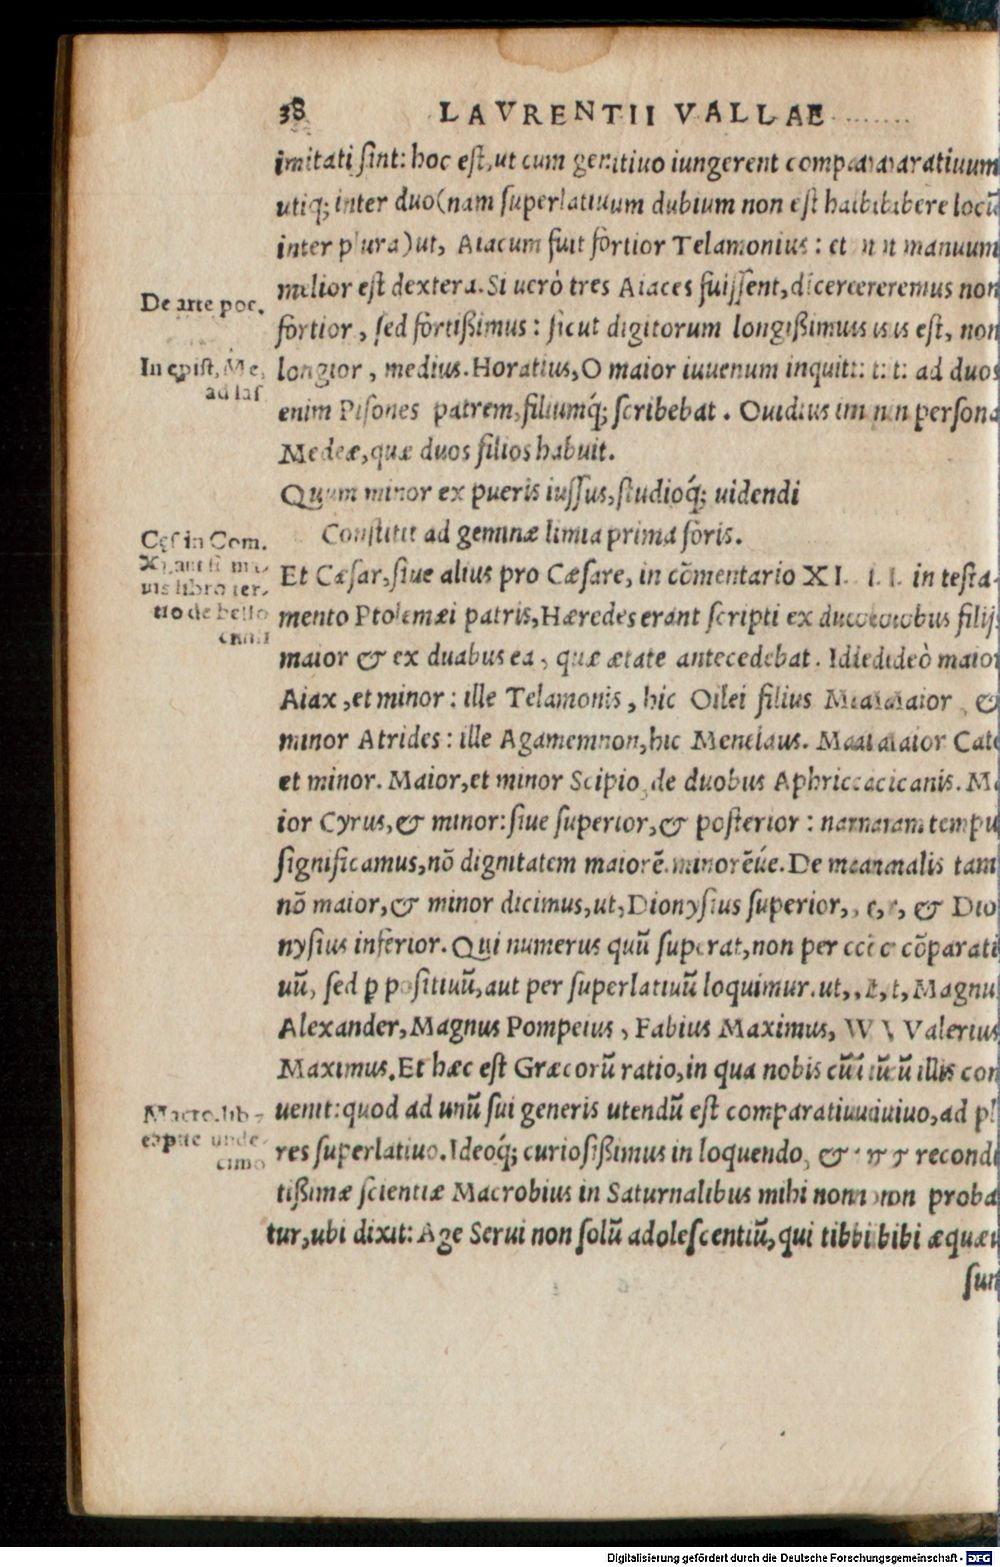 38 LAVRENTII VALLAE
imitati sint: hoc est, ut cum genitiuo iungerent comparatiuum
utiq; inter duo (nam superlatiuum dubium non est habere locū
inter plura) ut, Aiacum fuit fortior Telamonius: et manuum
melior est dextera. Si uerò tres Aiaces fuissent, diceremus non
De arte poc.
fortior, sed fortißimus: sicut digitorum longißimus est, non
In epist, Me,
ad Ias
longior, medius. Horatius, O maior iuuenum inquit: ad duos
enim Pisones patrem, filiumq́; scribebat. Ouidius in persona
Medeæ, quæ duos filios habuit.
Quum minor ex pueris iussus, studioq́; uidendi
Constitit ad geminæ limia prima foris.
Cęs in Com.
XI, aut si ma-
uis libro ter-
tio de bello
ciuili
Et Cæsar, siue alius pro Cæsare, in cōmentario XI. in testa-
mento Ptolemæi patris, Hæredes erant scripti ex duobus filijs
maior & ex duabus ea, quæ ætate antecedebat. Ideò maior
Aiax, et minor: ille Telamonis, hic Oilei filius Maior &
minor Atrides: ille Agamemnon, hic Menelaus. Maior Cato
et minor. Maior, et minor Scipio de duobus Aphricanis. Ma
ior Cyrus, & minor: siue superior, & posterior: nam tempus
significamus, nō dignitatem maiorē. minorēúe. De malis tam
nō maior, & minor dicimus, ut, Dionysius superior, & Dio
nysius inferior. Qui numerus quū superat, non per cōparati
uū, sed ꝑ positiuū, aut per superlatiuū loquimur. ut, Magnus
Alexander, Magnus Pompeius, Fabius Maximus, Valerius
Maximus. Et hæc est Græcorū ratio, in qua nobis cū illis con
Macro. lib-
eapite unde-
cimo
uenit: quod ad unū sui generis utendū est comparatiuo, ad plu
res superlatiuo. Ideoq́; curiosißimus in loquendo, & recondi
tißimæ scientiæ Macrobius in Saturnalibus mihi non proba
tur, ubi dixit: Age Serui non solū adolescentiū, qui tibi æquæi
sun
Digitalisierung gefördert durch die Deutsche Forschungsgemeinschaft - DFG